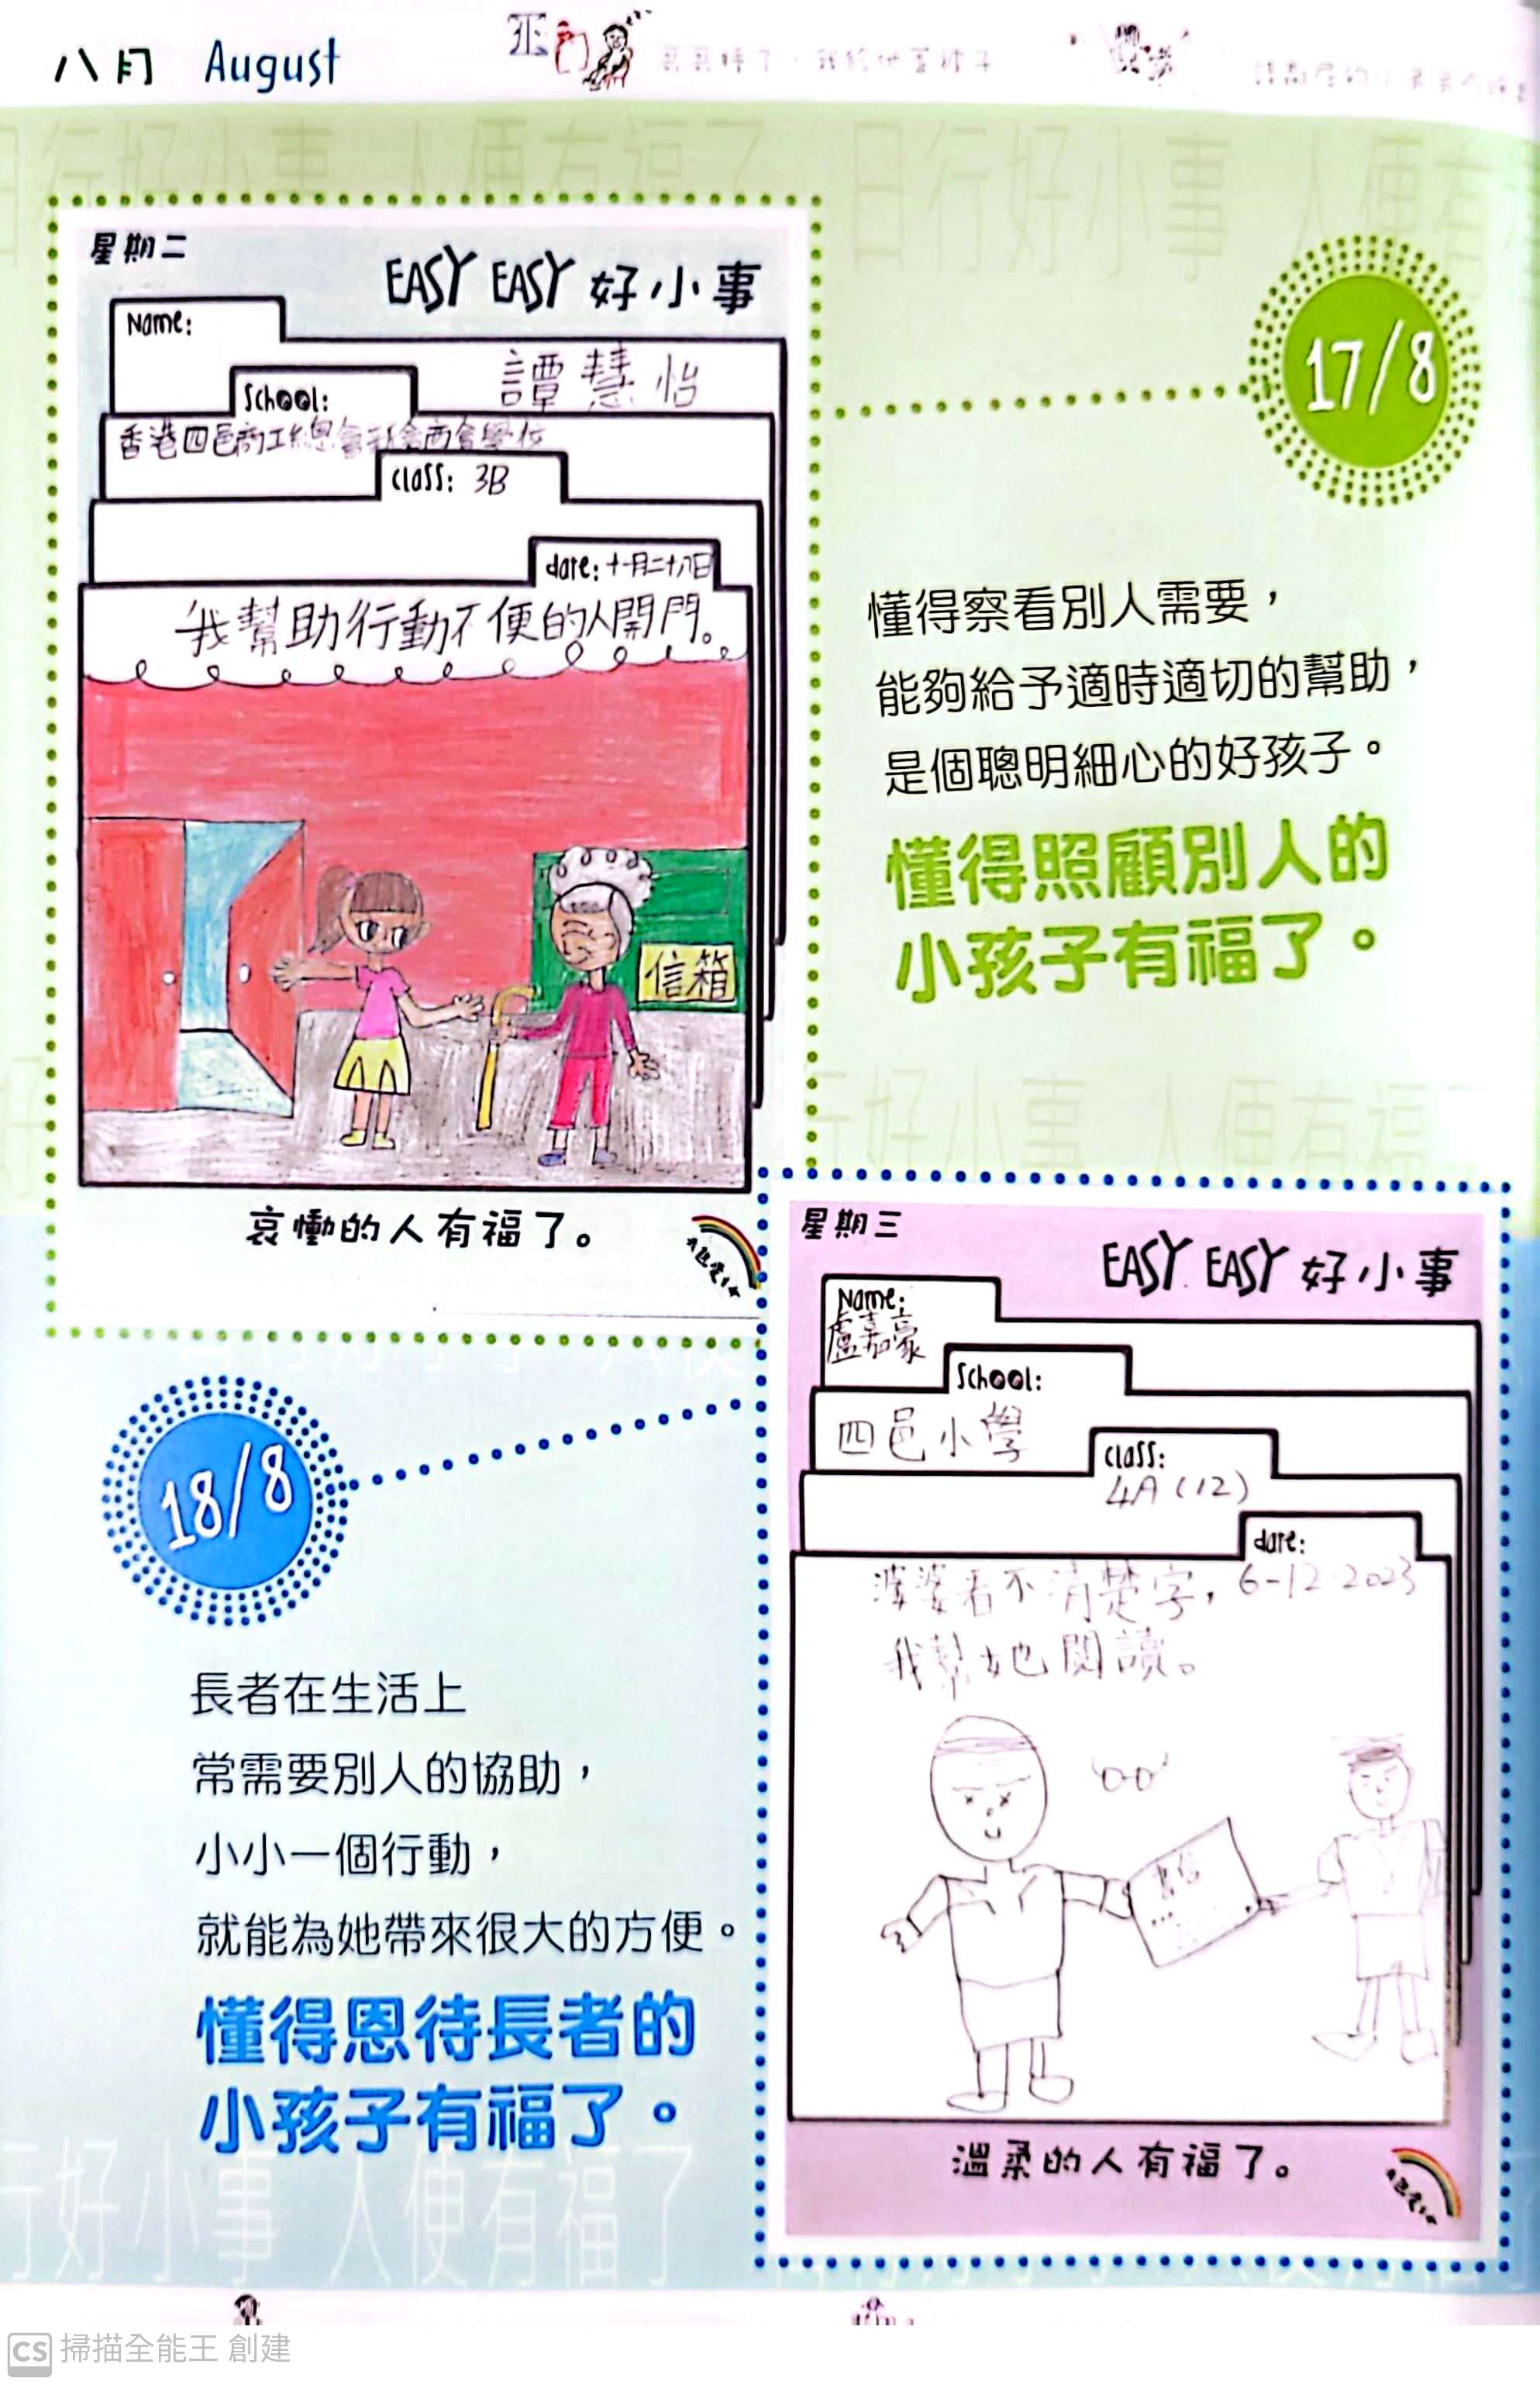 八月 August
星期二
EASY EASY 好小事
Name:
譚慧怡
School:
香港四邑商工總會新會商會學校
class: 3B
date: 十一月二十八日
我幫助行動不便的人開門。
信箱
哀慟的人有福了。
17/8
懂得察看別人需要，
能夠給予適時適切的幫助，
是個聰明細心的好孩子。
懂得照顧別人的
小孩子有福了。
18/8
長者在生活上
常需要別人的協助，
小小一個行動，
就能為她帶來很大的方便。
懂得恩待長者的
小孩子有福了。
星期三
EASY EASY 好小事
Name:
盧嘉豪
School:
四邑小學
class:
4A (12)
date:
6-12-2023
婆婆看不清楚字，
我幫她閱讀。
書信
溫柔的人有福了。
日行好小事 人便有福了
CS 掃描全能王 創建